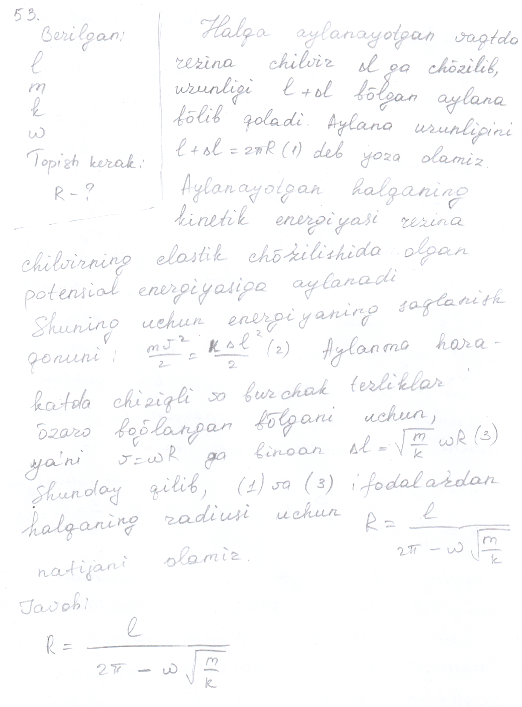 53.
Berilgan:
l
m
k
ω
Topish kerak:
R - ?
Halqa aylanayotgan vaqtda
rezina chilvir Δl ga chözilib,
uzunligi l + Δl bölgan aylana
bölib qoladi. Aylana uzunligini
l + Δl = 2πR (1) deb yoza olamiz.
Aylanayotgan halqaning
kinetik energiyasi rezina
chilvirning elastik chözilishida olgan
potensial energiyasiga aylanadi
Shuning uchun energiyaning saqlanish
qonuni: mv²/2 = kΔl²/2 (2) Aylanma hara-
katda chiziqli va burchak tezliklar
özaro boğlangan bölgani uchun,
ya'ni v = ωR ga binoan Δl = √(m/k) ωR (3)
Shunday qilib, (1) va (3) ifodalardan
halqaning radiusi uchun R = l / (2π - ω√(m/k))
natijani olamiz.
Javob:
R = l / (2π - ω√(m/k))